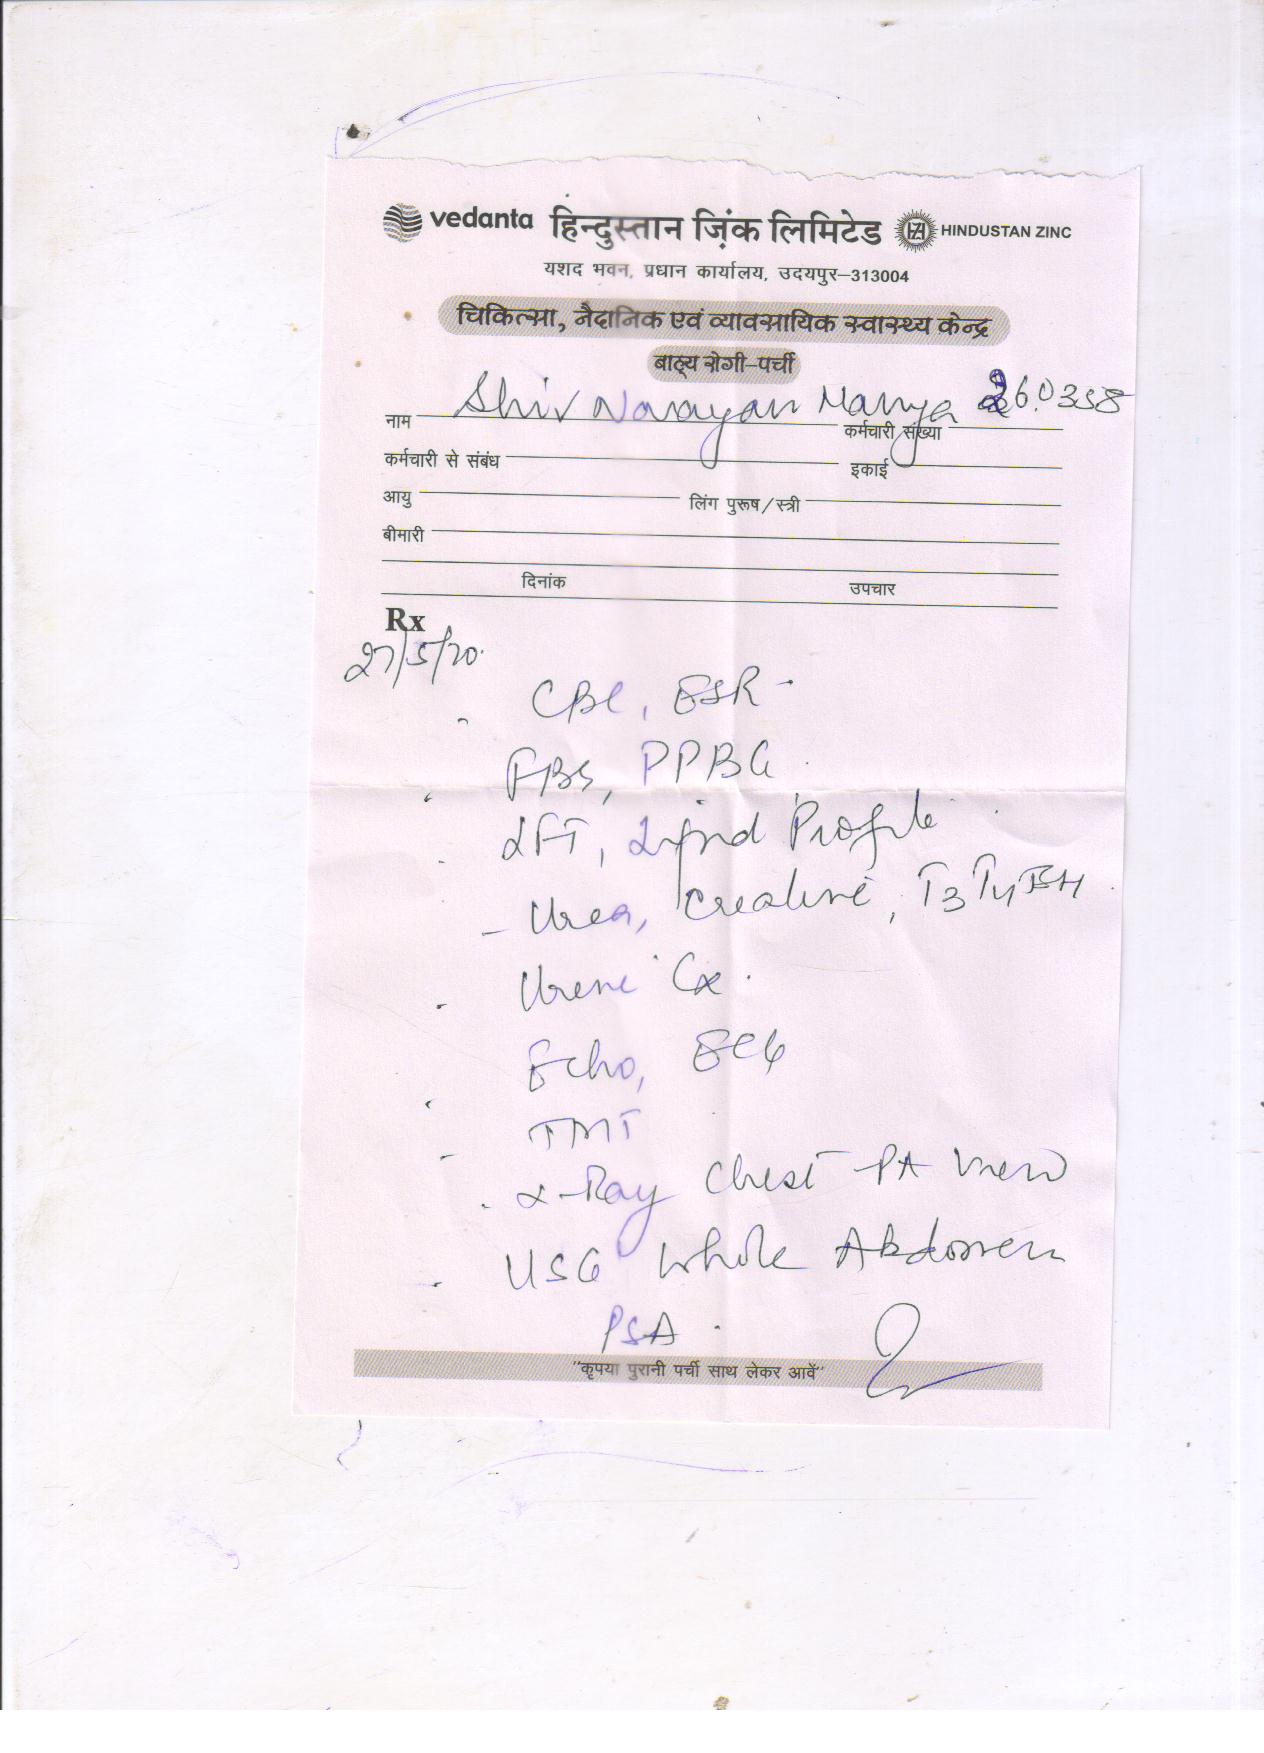 vedanta हिन्दुस्तान ज़िंक लिमिटेड HINDUSTAN ZINC
यशद भवन, प्रधान कार्यालय, उदयपुर–313004
चिकित्सा, नैदानिक एवं व्यावसायिक स्वास्थ्य केन्द्र
बाह्य रोगी-पर्ची
नाम Shiv Narayan कर्मचारी संख्या
कर्मचारी से संबंध इकाई
आयु लिंग पुरूष/स्त्री
बीमारी
दिनांक उपचार
Rx
27/5/20
CBC, ESR
FBS, PPBG
LFT, Lipid Profile
- Urea, Creatine, T3 T4 TSH
Urine
Echo, ECG
TMT
X-Ray Chest PA View
USG Whole Abdomen
PSA
"कृपया पुरानी पर्ची साथ लेकर आवें"